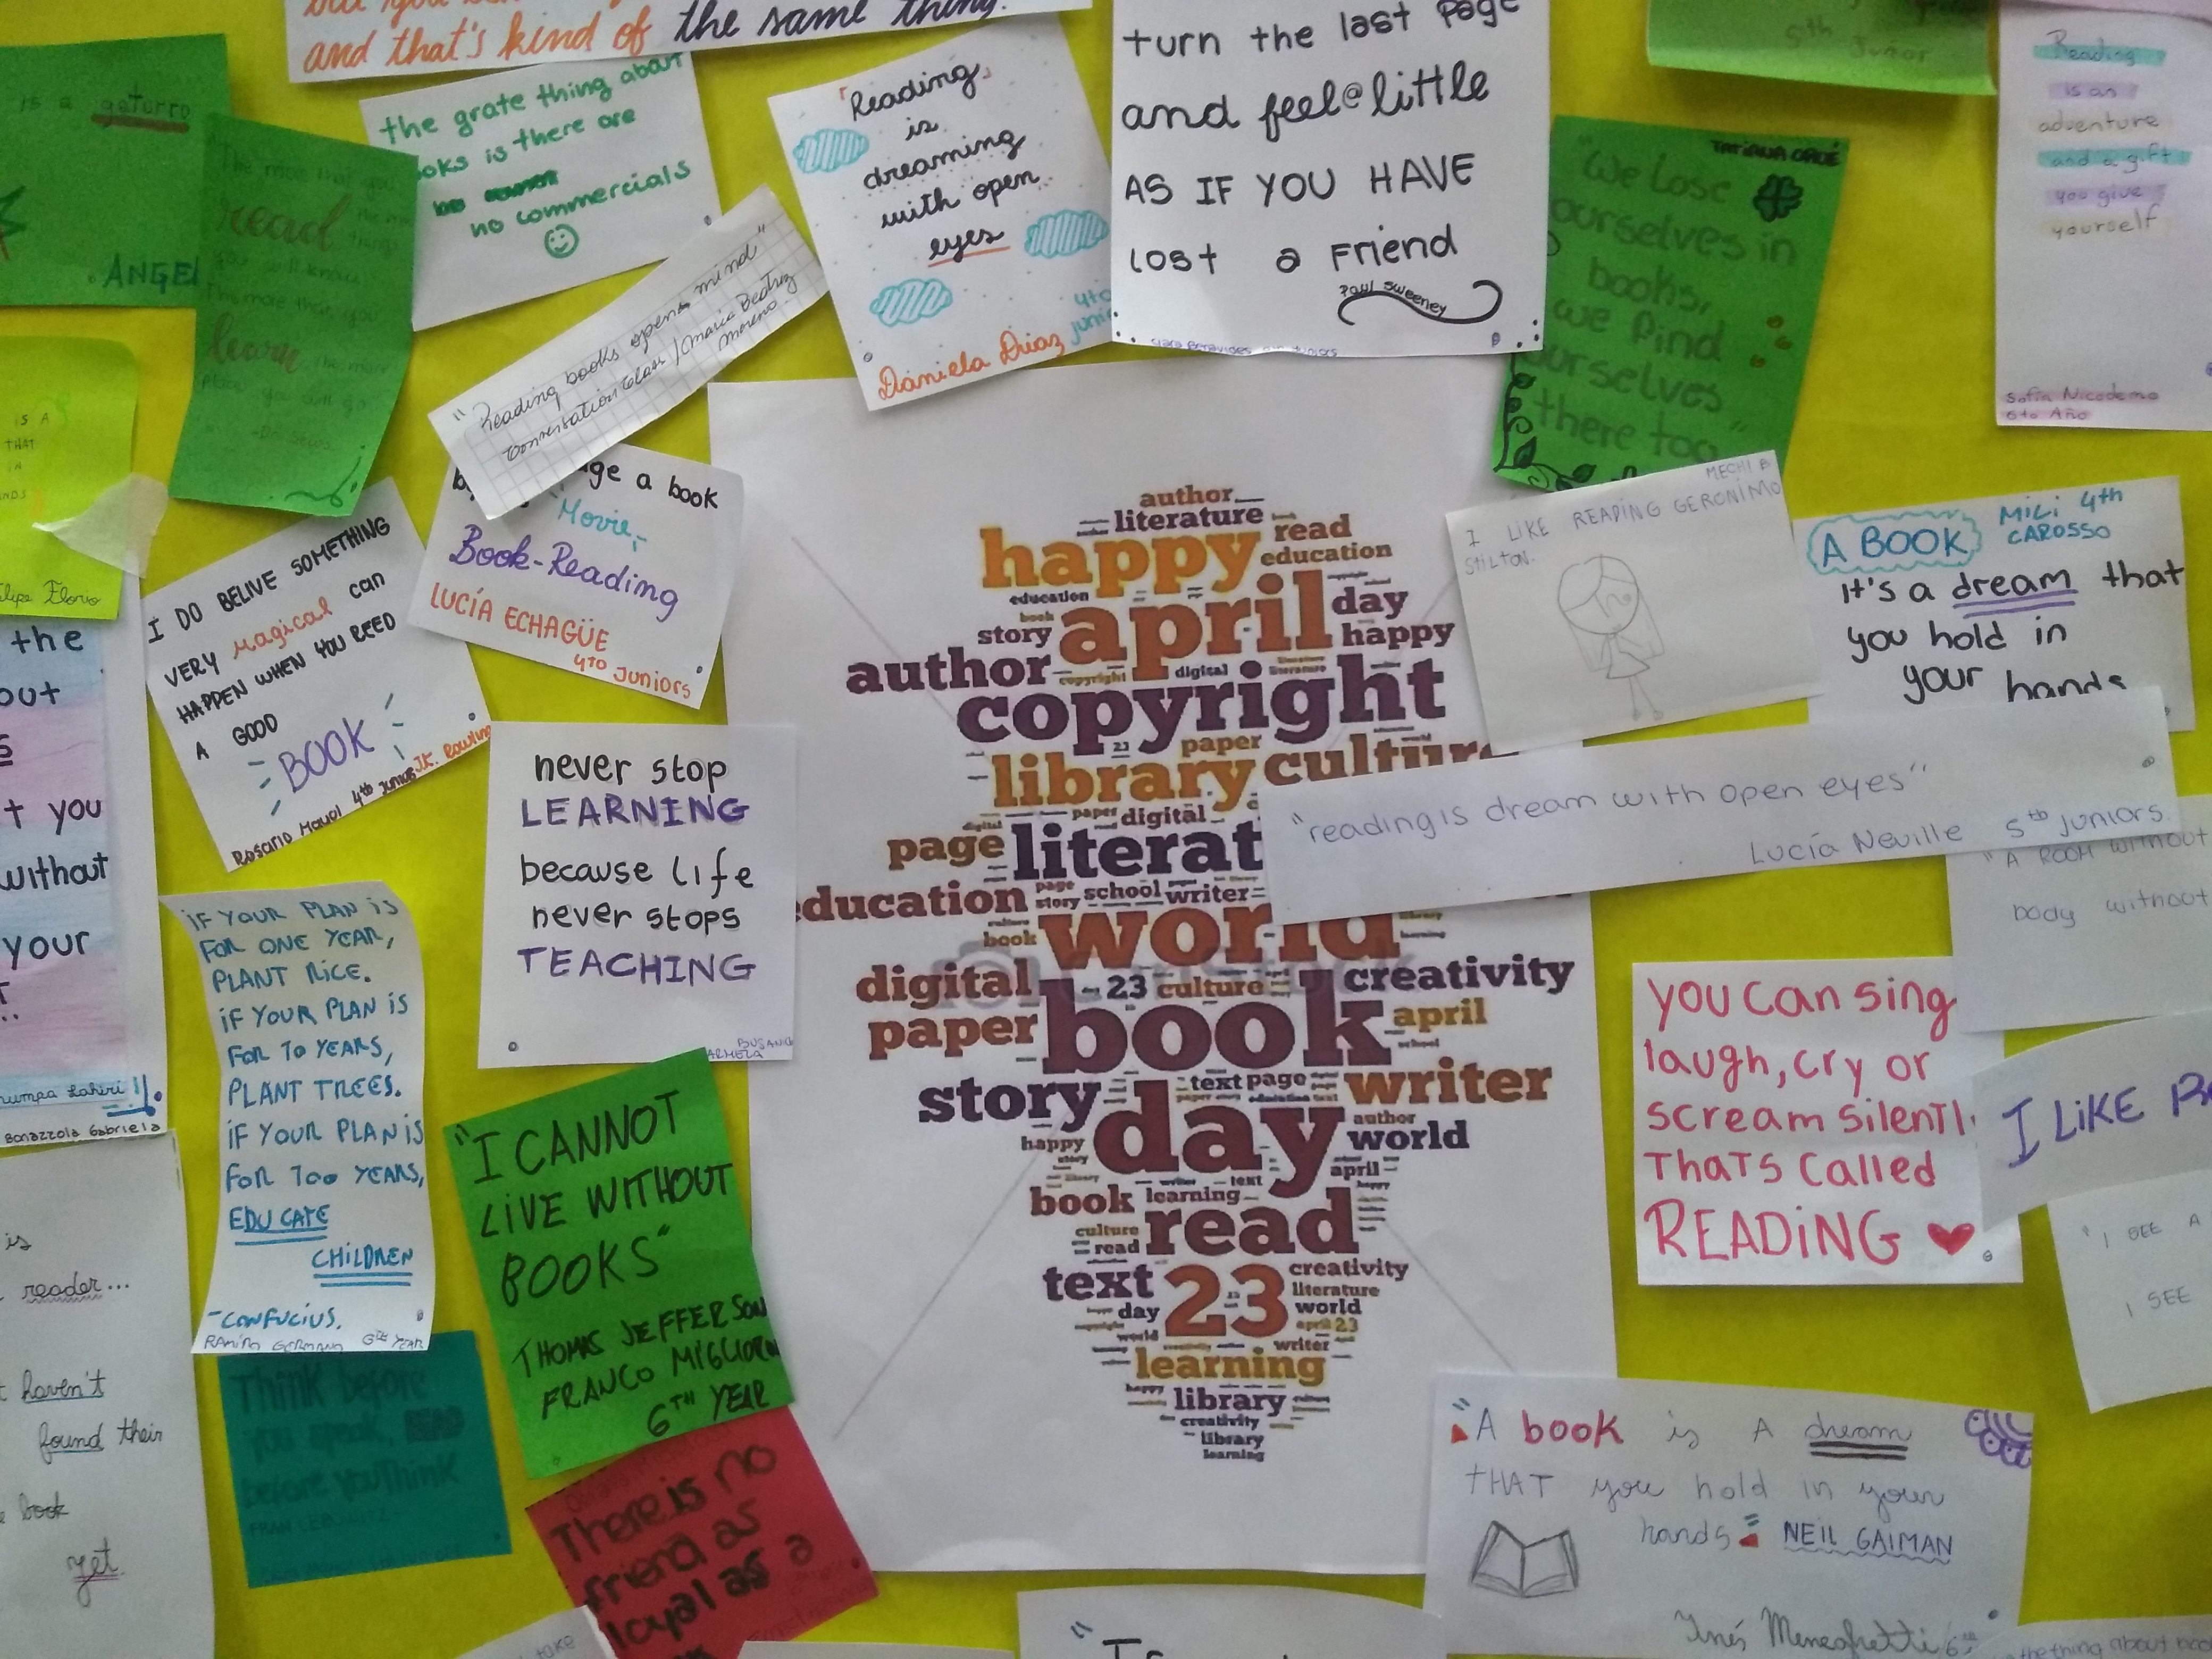 and that's kind of the same thing.
is a gaturro
ANGEL
The more that you
read
things
you will know.
The more that you
learn the more
places you will go
the grate thing about
oks is there are
no commercials
"Reading books opens mind"
Conversation Class / Maria Beatriz
Moreno
"Reading
is
dreaming
with open
eyes
Daniela Diaz
4to
turn the last page
and feel a little
AS IF YOU HAVE
lost a Friend
Paul Sweeney
5th Junior
TATIANA ORDÉ
"We Lose
ourselves in
books,
we find
ourselves
there too"
Reading
is an
adventure
and a gift
you give
yourself
Sofía Nicodemo
6to Año
IS A
THAT
IN
Florio
I DO BELIVE SOMETHING
VERY Magical can
HAPPEN WHEN YOU REED
A GOOD
BOOK
J.K. Rowling
4th Juniors
ge a book
Movie,
Book-Reading
LUCÍA ECHAGÜE
4TO JUNIORS
MECHI B
I LIKE READING GERONIMO
STILTON.
MILI 4th
CAROSSO
A BOOK
It's a dream that
you hold in
your hands
"reading is dream with open eyes"
Lucía Neville 5th juniors.
"A ROOM WITHOUT
body without
the
out
t you
without
your
Bonazzola Gabriela
never stop
LEARNING
because life
never stops
TEACHING
IF YOUR PLAN IS
FOR ONE YEAR,
PLANT RICE.
IF YOUR PLAN IS
FOR 10 YEARS,
PLANT TREES.
IF YOUR PLAN IS
FOR 100 YEARS,
EDUCATE
CHILDREN
-CONFUCIUS.
RAMIRO GERMANO 6TH YEAR
"I CANNOT
LIVE WITHOUT
BOOKS"
THOMAS JEFFERSON
FRANCO
6TH YEAR
author
literature
happy read
education
education
book april day
story happy
author copyright digital literature
copyright
23 paper
library culture
paper digital
page literat
education page school writer
story
book world
digital 23 culture creativity
paper book april
school
story text page writer
day author
happy world
april
book learning text
culture read
read
text 23 creativity
literature
day world
world april 23
writer
learning
happy library
creativity
library
learning
you can sing
laugh, cry or
scream silentl
Thats called
READING
I LIKE
"I SEE A
I SEE
is
reader...
haven't
found their
book
yet
Think before
you speak, READ
before you Think
FRAN LEBOWITZ
There is no
friend as
loyal as a
"A book is A dream
THAT you hold in your
hands" NEIL GAIMAN
Inés
thing about book
take